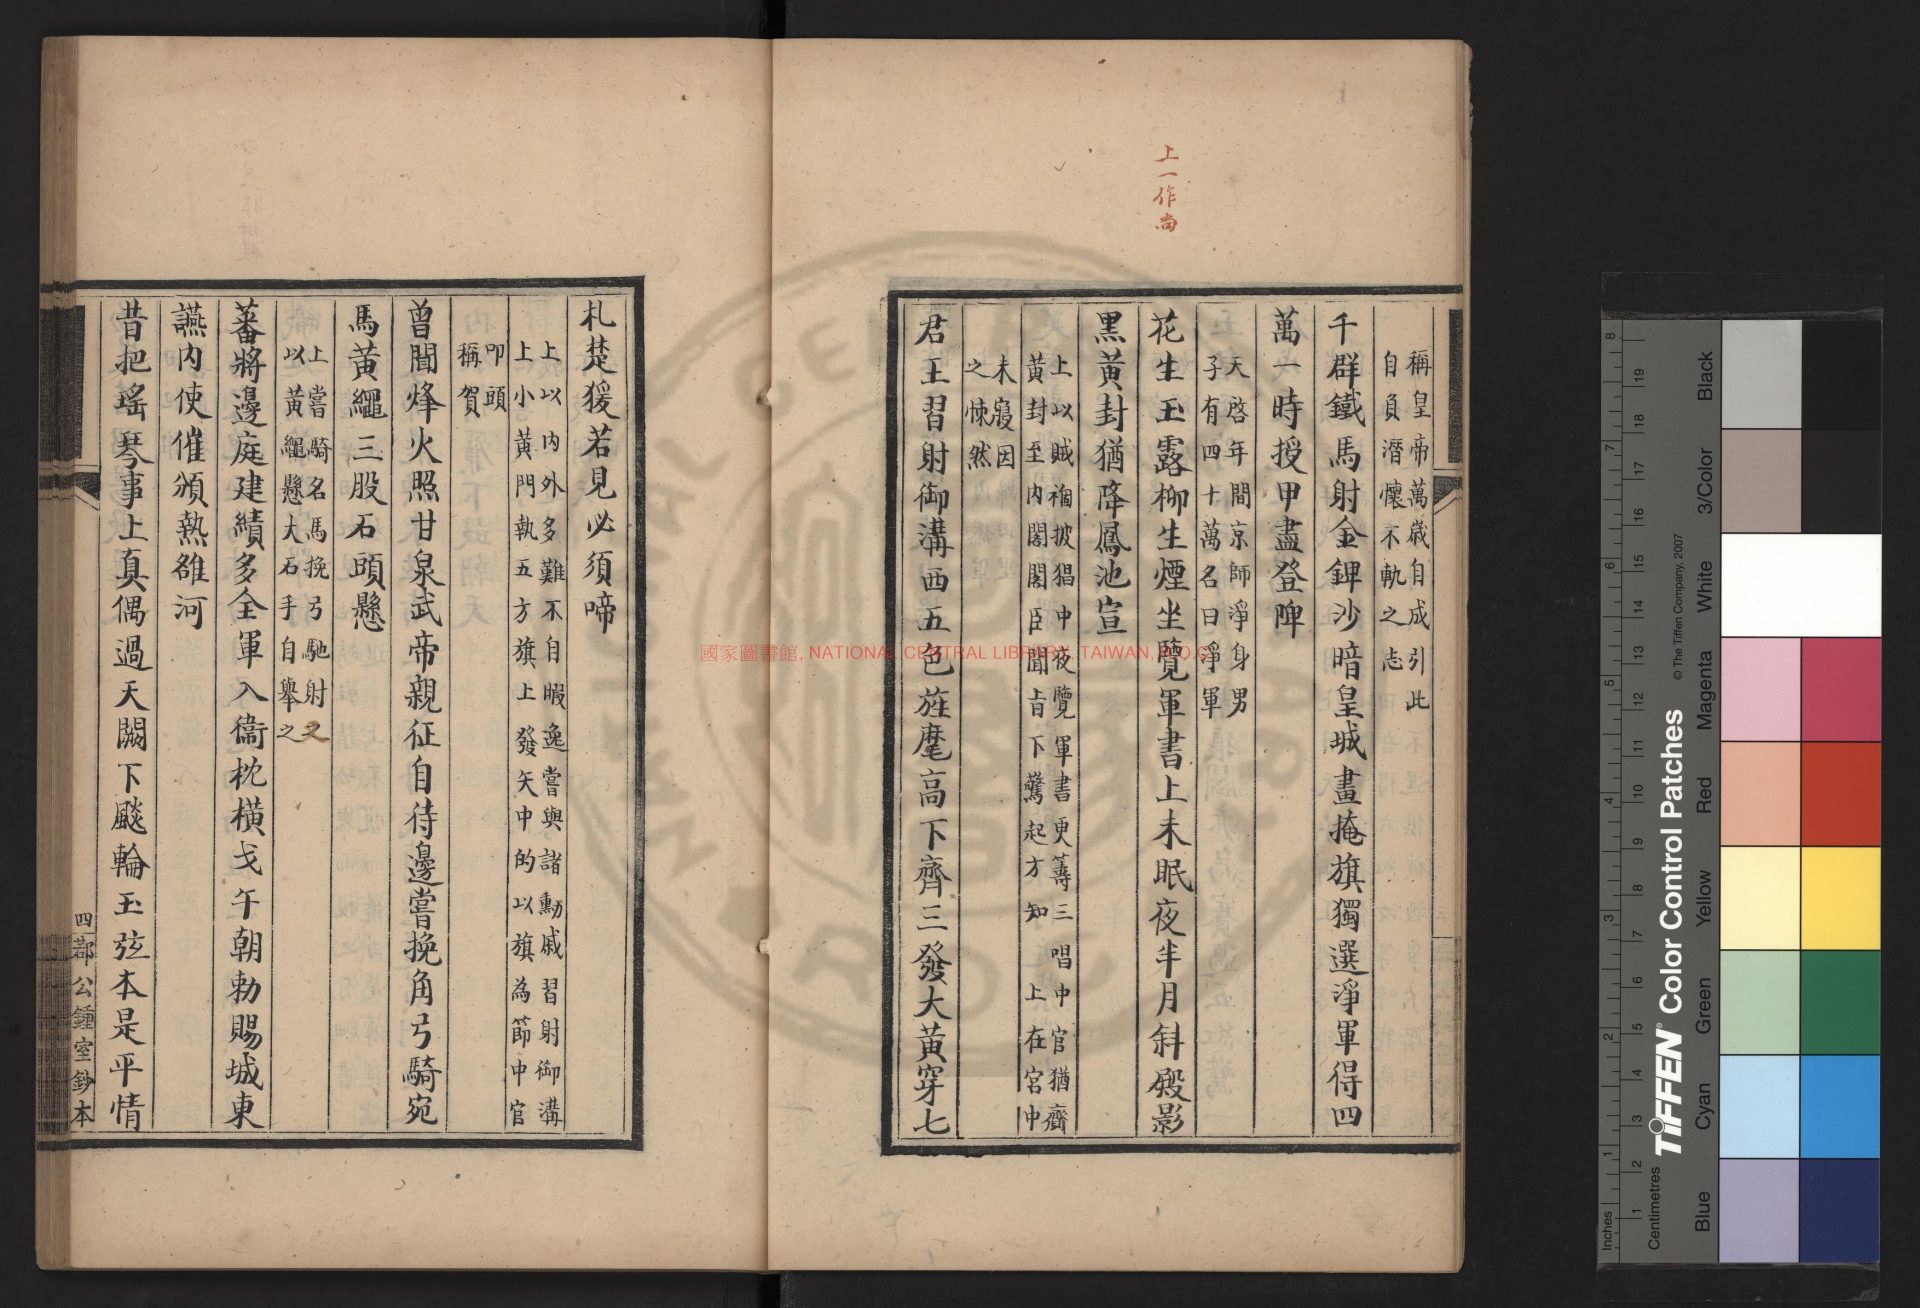 上一作尚
稱皇帝萬歲自成引此
自負潛懷不軌之志
千群鐵馬射金鉀沙暗皇城晝掩旗獨選淨軍得四
萬一時授甲盡登陴
天啓年間京師淨身男
子有四十萬名曰淨軍
花生玉露柳生煙坐覽軍書上未眠夜半月斜殿影
黑黃封猶降鳳池宣
上以賊禍披猖中夜覽軍書更籌三唱中官猶齎
黃封至内閣閣臣聞旨下驚起方知上在宮中
未寢因
之悚然
君王習射御溝西五色旌麾高下齊三發大黃穿七
札楚猨若見必須啼
上以内外多難不自暇逸嘗與諸勳戚習射御溝
上小黃門執五方旗上發矢中的以旗為節中官
叩頭
稱賀
曾聞烽火照甘泉武帝親征自待邊嘗挽角弓騎宛
馬黃繩三股石頭懸
上嘗騎名馬挽弓馳射又
以黃繩懸大石手自舉之
蕃將邊庭建績多全軍入衞枕橫戈午朝勅賜城東
讌内使催頒熱雒河
昔把瑤琴事上真偶過天闕下飈輪玉弦本是平情
四
鄀公鍾室鈔本
國家圖書館, NATIONAL CENTRAL LIBRARY, TAIWAN, R.O.C
Inches
Centimetres
TIFFEN® Color Control Patches
© The Tiffen Company, 2007
Blue
Cyan
Green
Yellow
Red
Magenta
White
3/Color
Black